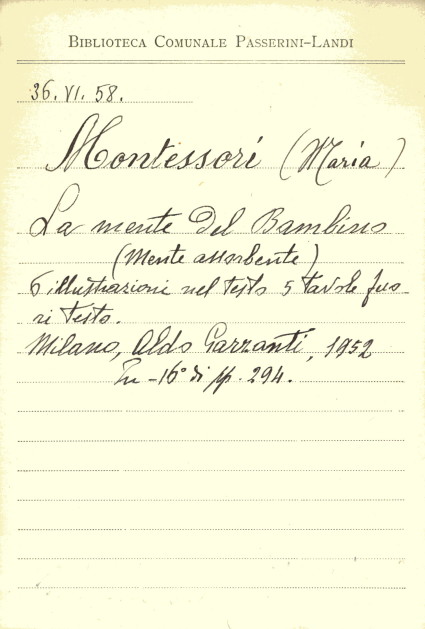 BIBLIOTECA COMUNALE PASSERINI-LANDI
36. VI. 58.
Montessori (Maria)
La mente del Bambino
(Mente assorbente)
6 illustrazioni nel testo 5 tavole fuo-
ri testo.
Milano, Aldo Garzanti, 1952
In-16° di pp. 294.